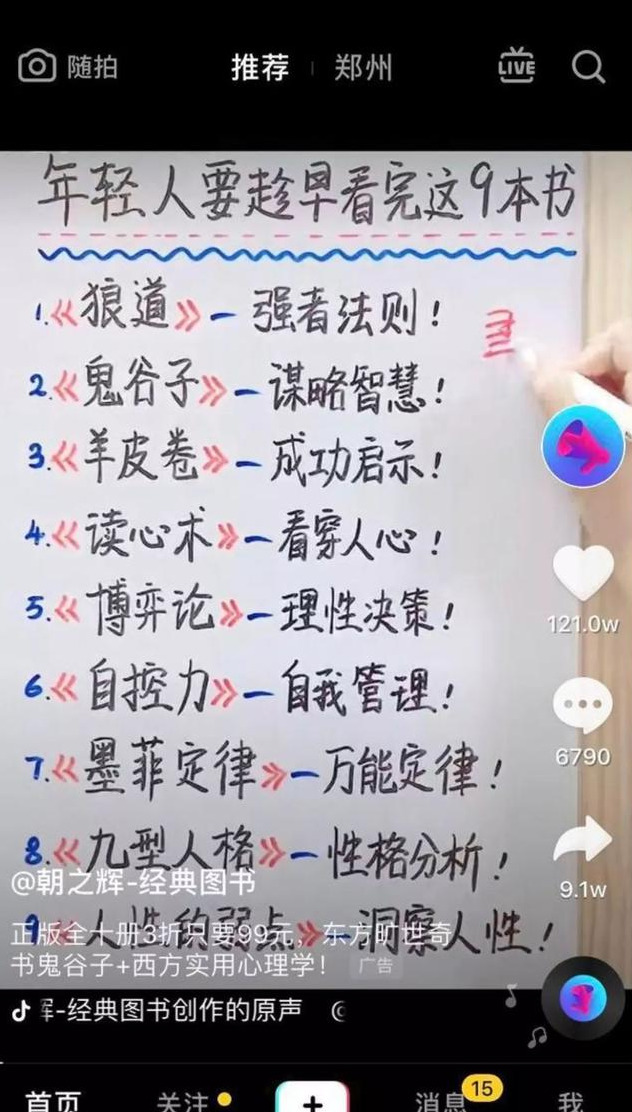 随拍 推荐 郑州 LIVE
年轻人要趁早看完这9本书
1.《狼道》—强者法则！
2.《鬼谷子》—谋略智慧！
3.《羊皮卷》—成功启示！
4.《读心术》—看穿人心！
5.《博弈论》—理性决策！
121.0w
6.《自控力》—自我管理！
6790
7.《墨菲定律》—万能定律！
8.《九型人格》—性格分析！
9.1w
@朝之辉-经典图书
9.《人性的弱点》—洞察人性！
正版全十册3折只要99元，东方旷世奇
书鬼谷子+西方实用心理学！ 广告
辉-经典图书创作的原声
首页 关注 消息 15 我